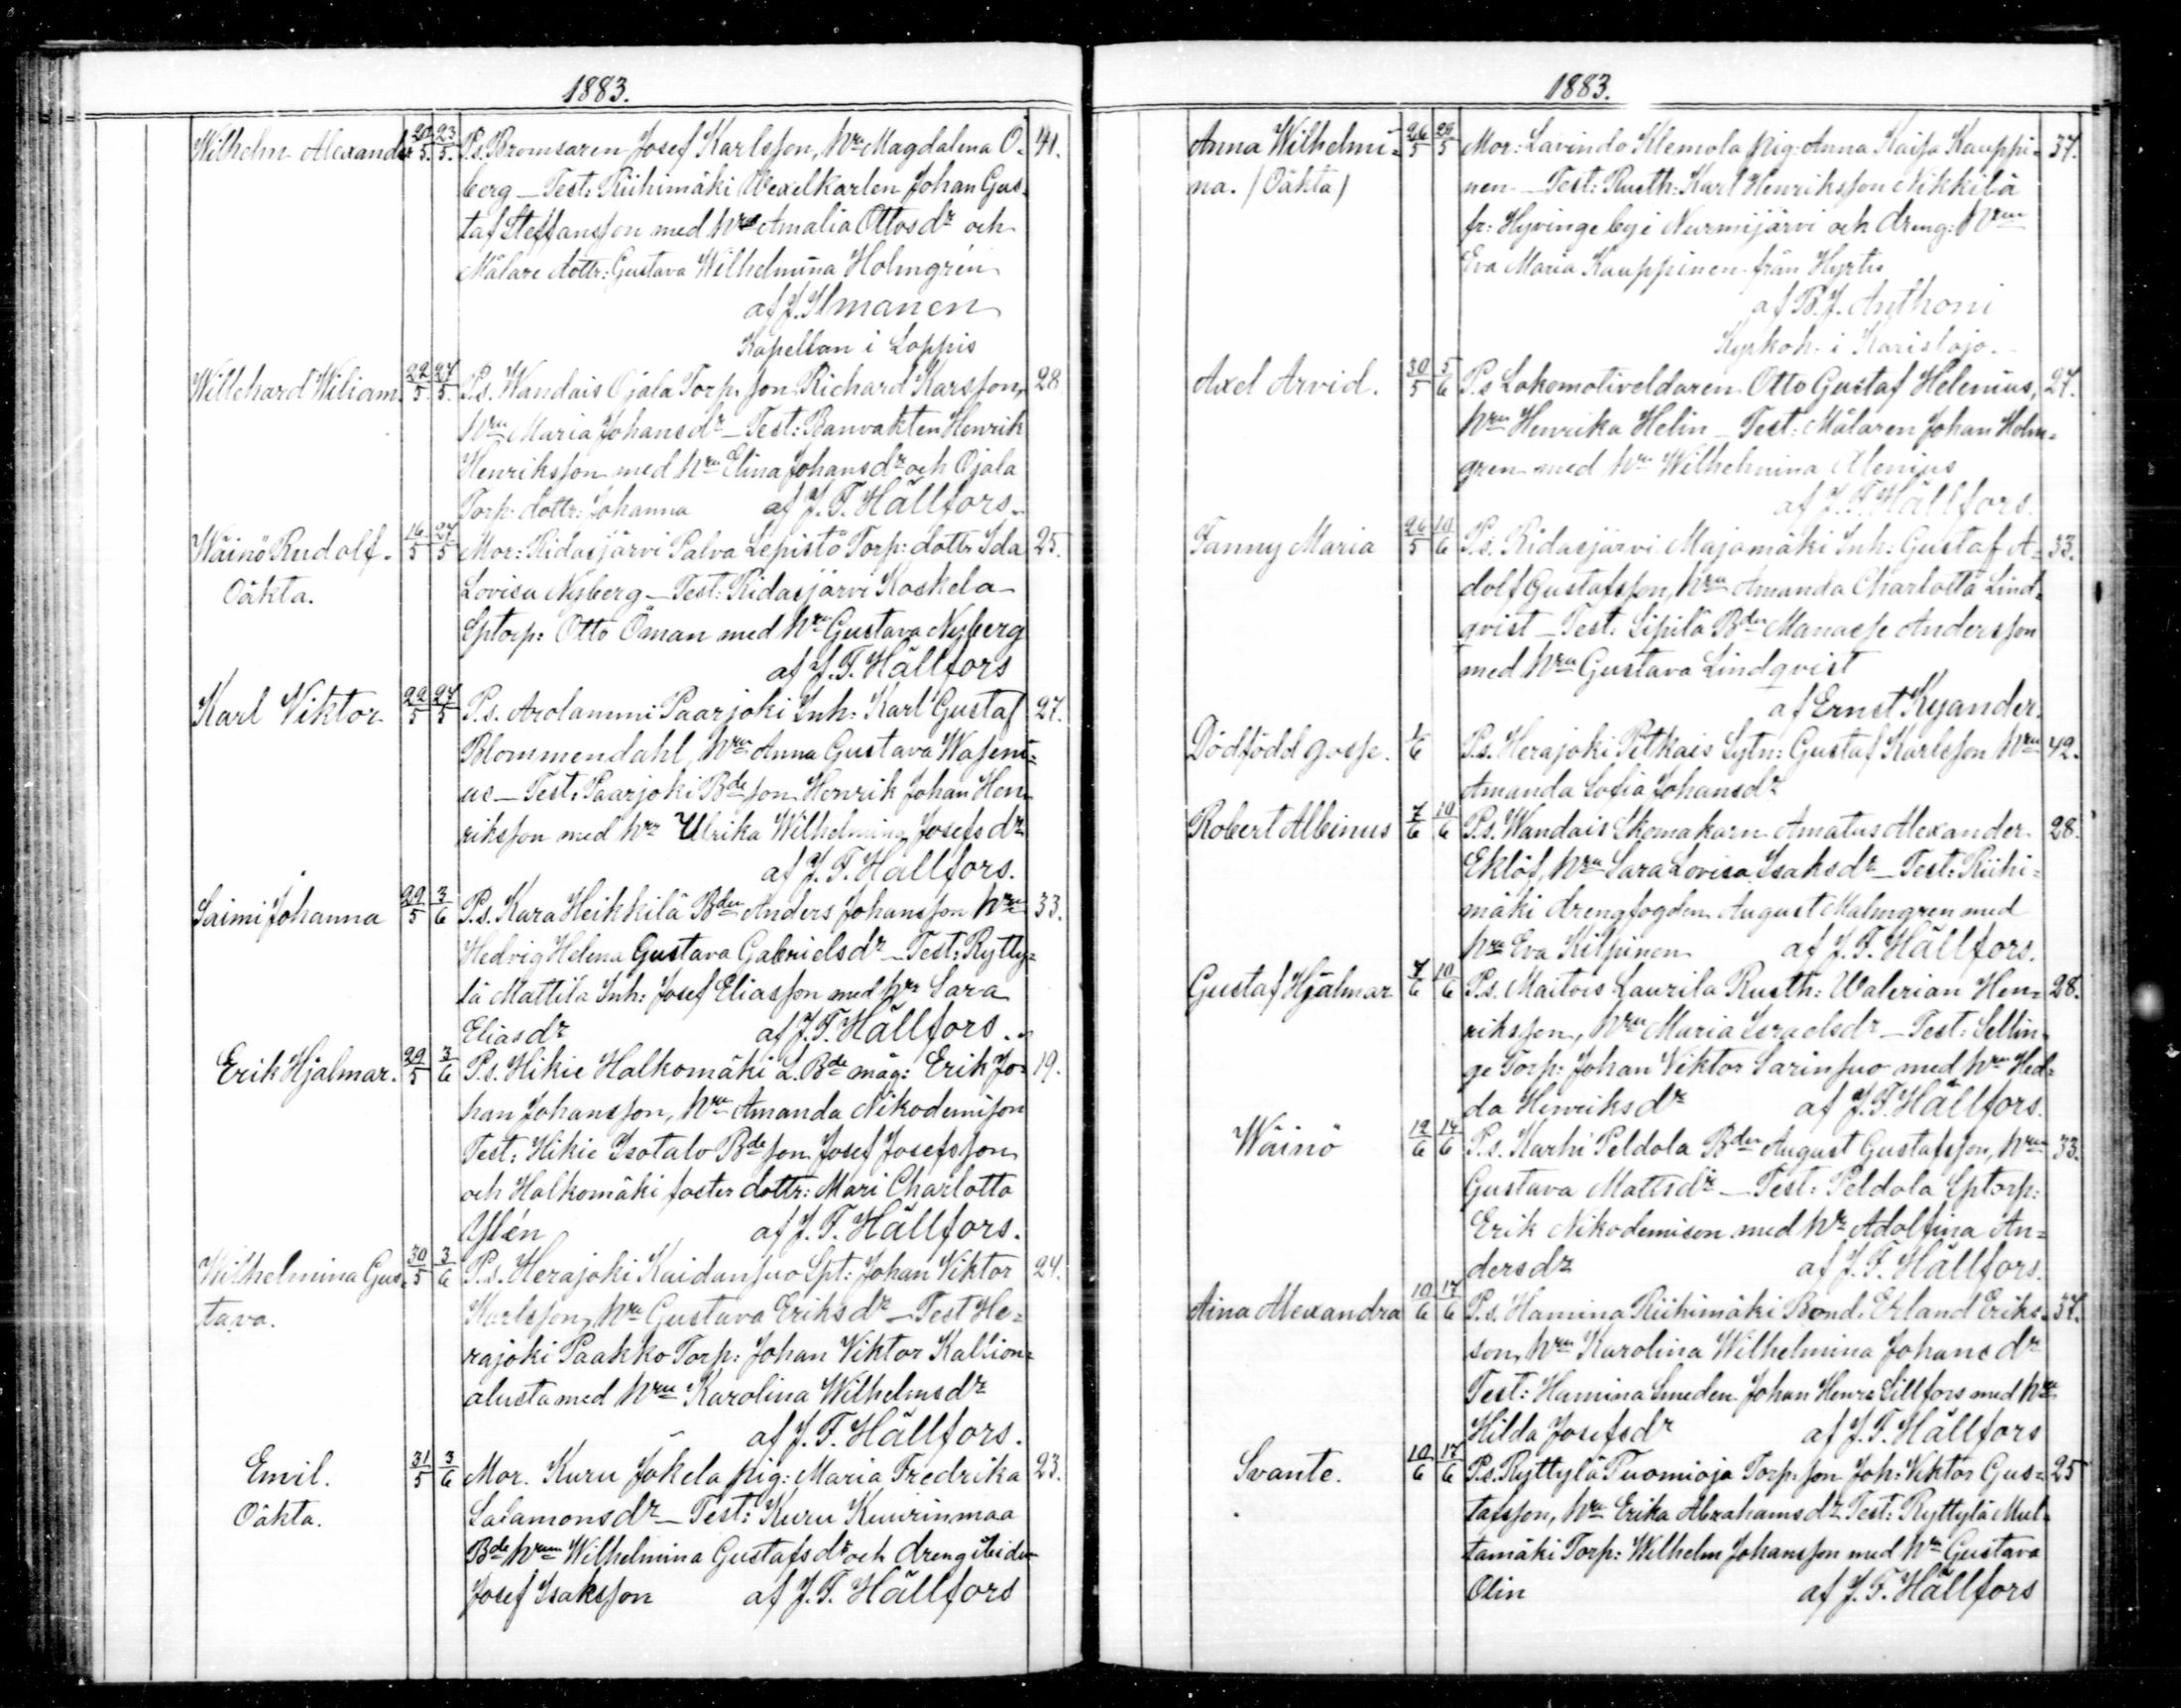 1883.
Wilhelm Alexander 20/5. 23/5. P.s. Bromsaren Josef Karlsson, hru Magdalena Ö- 41.
berg — Test: Riihimäki Wexelkarlen Johan Gus-
taf Steffansson med hru Amalia Ottosdr och
Målare dottr: Gustava Wilhelmina Holmgrén
af J. Ilmanen
Kapellan i Loppis
Willehard Wiliam. 22/5. 27/5. P.s. Wandais Ojala Torp. son Richard Karsson, 28
hru Maria Johansdr — Test: Banvakten Henrik
Henriksson med hru Elina Johansdr och Ojala
Torp. dottr: Johanna af J. F. Hällfors.
Wäinö Rudolf. 16/5 27/5 Mor: Ridasjärvi Palva Lepistö Torp: dottr Ida 25.
Oäkta. Lovisa Nyberg — Test: Ridasjärvi Koskela
Sptorp: Otto Öman med hru Gustava Nyberg
af J. F. Hällfors
Karl Viktor 22/5 27/5 P.s. Arolammi Paarjoki Inh: Karl Gustaf 27.
Blommendahl, hru Anna Gustava Waseni-
us — Test: Paarjoki Bde son Henrik Johan Hen-
riksson med hru Ulrika Wilhelmina Josefsdr
af J. F. Hällfors.
Saimi Johanna 29/5 3/6 P.s. Kara Heikkilä Bden Anders Johansson hru 33.
Hedvig Helena Gustava Gabrielsdr — Test: Rytty-
lä Mattila Inh: Josef Eliasson med hru Sara
Eliasdr af J. F. Hällfors.
Erik Hjalmar. 29/5 3/6 P.s. Hikie Halkomäki L. Bde måg: Erik Jo- 19.
han Johansson, hru Amanda Nikodemison
Test: Hikie Isotalo Bde son Josef Josefsson
och Halkomäki foster dottr: Mari Charlotta
Ylén af J. F. Hällfors.
Wilhelmina Gus- 30/5 3/6 P.s. Herajoki Kaidansuo Spt: Johan Viktor 24.
tava. Karlsson, hru Gustava Eriksdr — Test He-
rajoki Paakko Torp: Johan Viktor Kallion-
alusta med hru Karolina Wilhelmsdr
af J. F. Hällfors.
Emil. 31/5 3/6 Mor. Kuru Jokela pig: Maria Fredrika 23.
Oäkta. Salamonsdr — Test: Kuru Kuurinmaa
Bde hrun Wilhelmina Gustafsdr och dreng
Josef Isaksson af J. F. Hällfors
1883.
Anna Wilhelmi- 26/5 29/5 Mor: Lavindo Klemola pig: Anna Kaisa Kauppi- 37.
na. (Oäkta) nen — Test: Rusth: Karl Henriksson Nikkilä
fr: Hyvinge by i Nurmijärvi och dreng: hrun
Eva Maria Kauppinen från Hyrtis
af B. J. Anthoni
Kyrkoh: i Karislojo.
Axel Arvid. 30/5 5/6 P.s Lokomotiveldaren Otto Gustaf Helenius, 27.
hru Henrika Helin — Test: Målaren Johan Holm-
gren med hru Wilhelmina Alenius
af J. F. Hällfors.
Fanny Maria 26/5 10/6 P.s. Ridasjärvi Majamäki Inh: Gustaf A- 33.
dolf Gustafsson, hru Amanda Charlotta Lind-
qvist — Test. Sipilä Bden Manasse Andersson
med hru Gustava Lindqvist
af Ernst Kyander.
Dödfödd gosse. 1/6 P.s. Herajoki Pitkais Sytn: Gustaf Karlsson hru 42.
Amanda Sofia Johansdr
Robert Albinus 7/6 10/6 P.s. Wandais Skomakarn Amatus Alexander 28.
Eklöf, hru Sara Lovisa Isaksdr — Test: Riihi-
mäki drengfogden August Malmgren med
hru Eva Kilpinen af J. F. Hällfors.
Gustaf Hjalmar 7/6 10/6 P.s. Maitois Laurila Rusth: Walerian Hen- 28.
riksson, hru Maria Israelsdr — Test: Sellin-
ge Torp: Johan Viktor Sarinsuo med hru Hed-
da Henriksdr af J. F. Hällfors.
Wäinö 12/6 14/6 P.s. Karhi Peldola Bden August Gustafsson, hru 33.
Gustava Mattsdr — Test: Peldola Sptorp:
Erik Nikodemison med hr Adolfina An-
dersdr af J. F. Hällfors.
Aina Alexandra 10/6 17/6 P.s. Hamina Riihimäki Bond. Erland Eriks- 37.
son, hru Karolina Wilhelmina Johansdr
Test: Hamina Smeden Johan Henr. Sillfors med hru
Hilda Josefsdr af J. F. Hällfors
Svante. 10/6 17/6 P.s. Ryttylä Tuomioja Torp. son Joh: Viktor Gus- 25
tafsson, hru Erika Abrahamsdr Test: Ryttylä Mul-
tamäki Torp: Wilhelm Johansson med hru Gustava
Olin af J. F. Hällfors